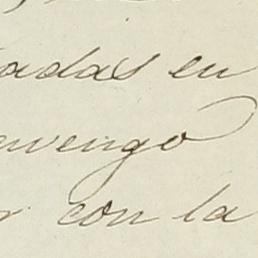 adas en
vengo
con la